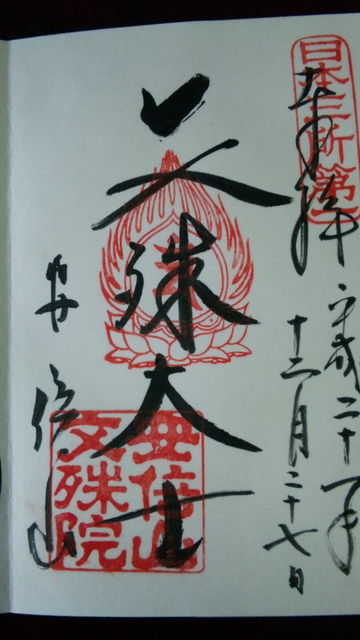 日本三所第一
奉拝 平成二十一年
十二月二十七日
文殊大士
安倍山
安倍山
文殊院